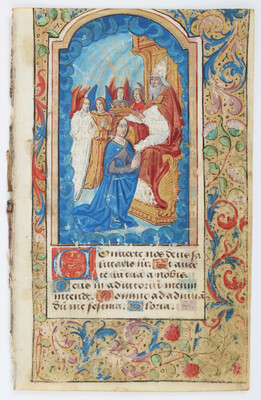 Onverte nos deus sa
lutaris nr. Et averte
iram tuam a nobis.
Deus in adiutorium meum
intende. Domine ad adiuva
dum me festina. Gloria.